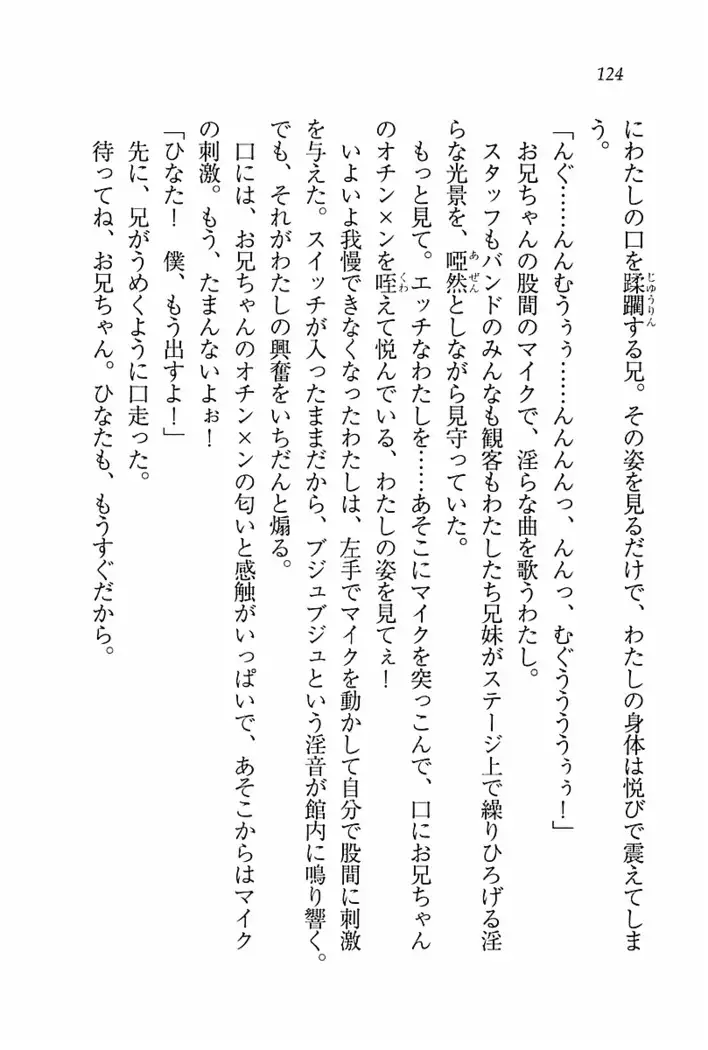 124
にわたしの口を蹂躙する兄。その姿を見るだけで、わたしの身体は悦びで震えてしま
う。
「んぐ……んんむうぅぅ……んんんんっ、んんっ、むぐうううううぅぅ！」
お兄ちゃんの股間のマイクで、淫らな曲を歌うわたし。
スタッフもバンドのみんなも観客もわたしたち兄妹がステージ上で繰りひろげる淫
らな光景を、啞然としながら見守っていた。
もっと見て。エッチなわたしを……あそこにマイクを突っこんで、口にお兄ちゃん
のオチン×ンを咥えて悦んでいる、わたしの姿を見てぇ！
いよいよ我慢できなくなったわたしは、左手でマイクを動かして自分で股間に刺激
を与えた。スイッチが入ったままだから、ブジュブジュという淫音が館内に鳴り響く。
でも、それがわたしの興奮をいちだんと煽る。
口には、お兄ちゃんのオチン×ンの匂いと感触がいっぱいで、あそこからはマイク
の刺激。もう、たまんないよぉ！
「ひなた！　僕、もう出すよ！」
先に、兄がうめくように口走った。
待ってね、お兄ちゃん。ひなたも、もうすぐだから。